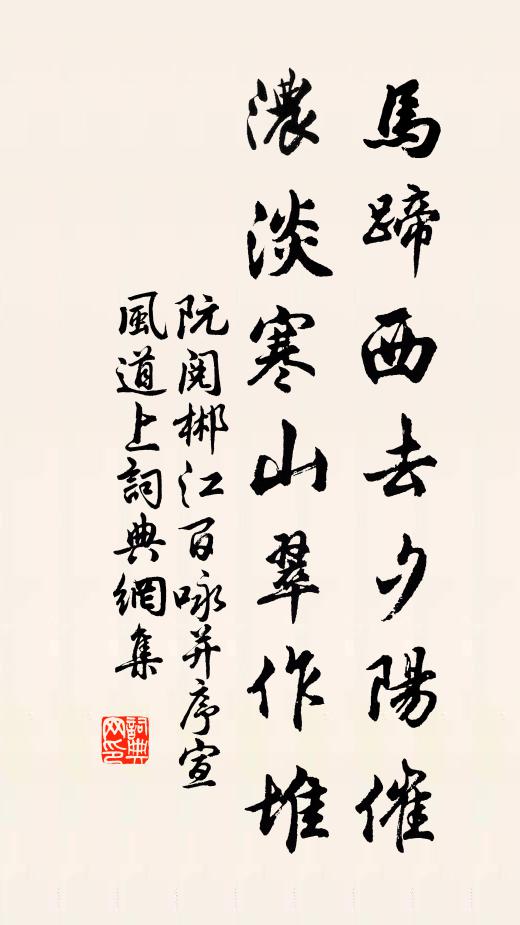 馬蹄西去夕陽催
濃淡寒山翠作堆
阮閱郴江百咏并序宣
風道上詞典網集
詞典網印